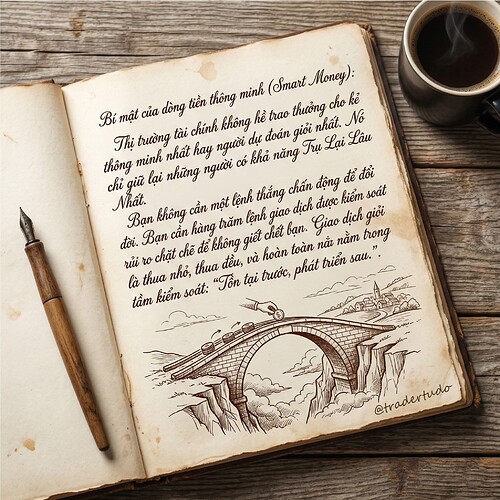 Bí mật của dòng tiền thông minh (Smart Money):
Thị trường tài chính không hề trao thưởng cho kẻ
thông minh nhất hay người dự đoán giỏi nhất. Nó
chỉ giữ lại những người có khả năng Trụ Lại Lâu
Nhất.
Bạn không cần một lệnh thắng chấn động để đổi
đời. Bạn cần hàng trăm lệnh giao dịch được kiểm soát
rủi ro chặt chẽ để không giết chết bạn. Giao dịch giỏi
là thua nhỏ, thua đều, và hoàn toàn nằm trong
tầm kiểm soát: “Tồn tại trước, phát triển sau.”.
@tradertudo